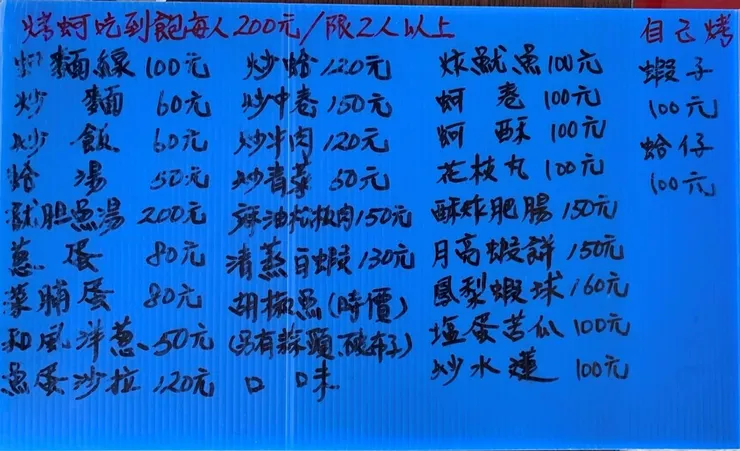 烤蚵吃到飽每人200元/限2人以上
蚵麵線 100元
炒麵 60元
炒飯 60元
蛤湯 50元
魩胆魚湯 200元
蔥蛋 80元
菜脯蛋 80元
和風洋蔥 50元
魚蛋沙拉 120元
炒蛤 120元
炒中卷 150元
炒牛肉 120元
炒青菜 60元
麻油松板肉 150元
清蒸白蝦 130元
胡椒魚(時價)
(另有蒜頭、破布子)
口味
炸魷魚 100元
蚵卷 100元
蚵酥 100元
花枝丸 100元
酥炸肥腸 150元
月亮蝦餅 150元
鳳梨蝦球 160元
塩蛋苦瓜 100元
炒水蓮 100元
自己烤
蝦子
100元
蛤仔
100元